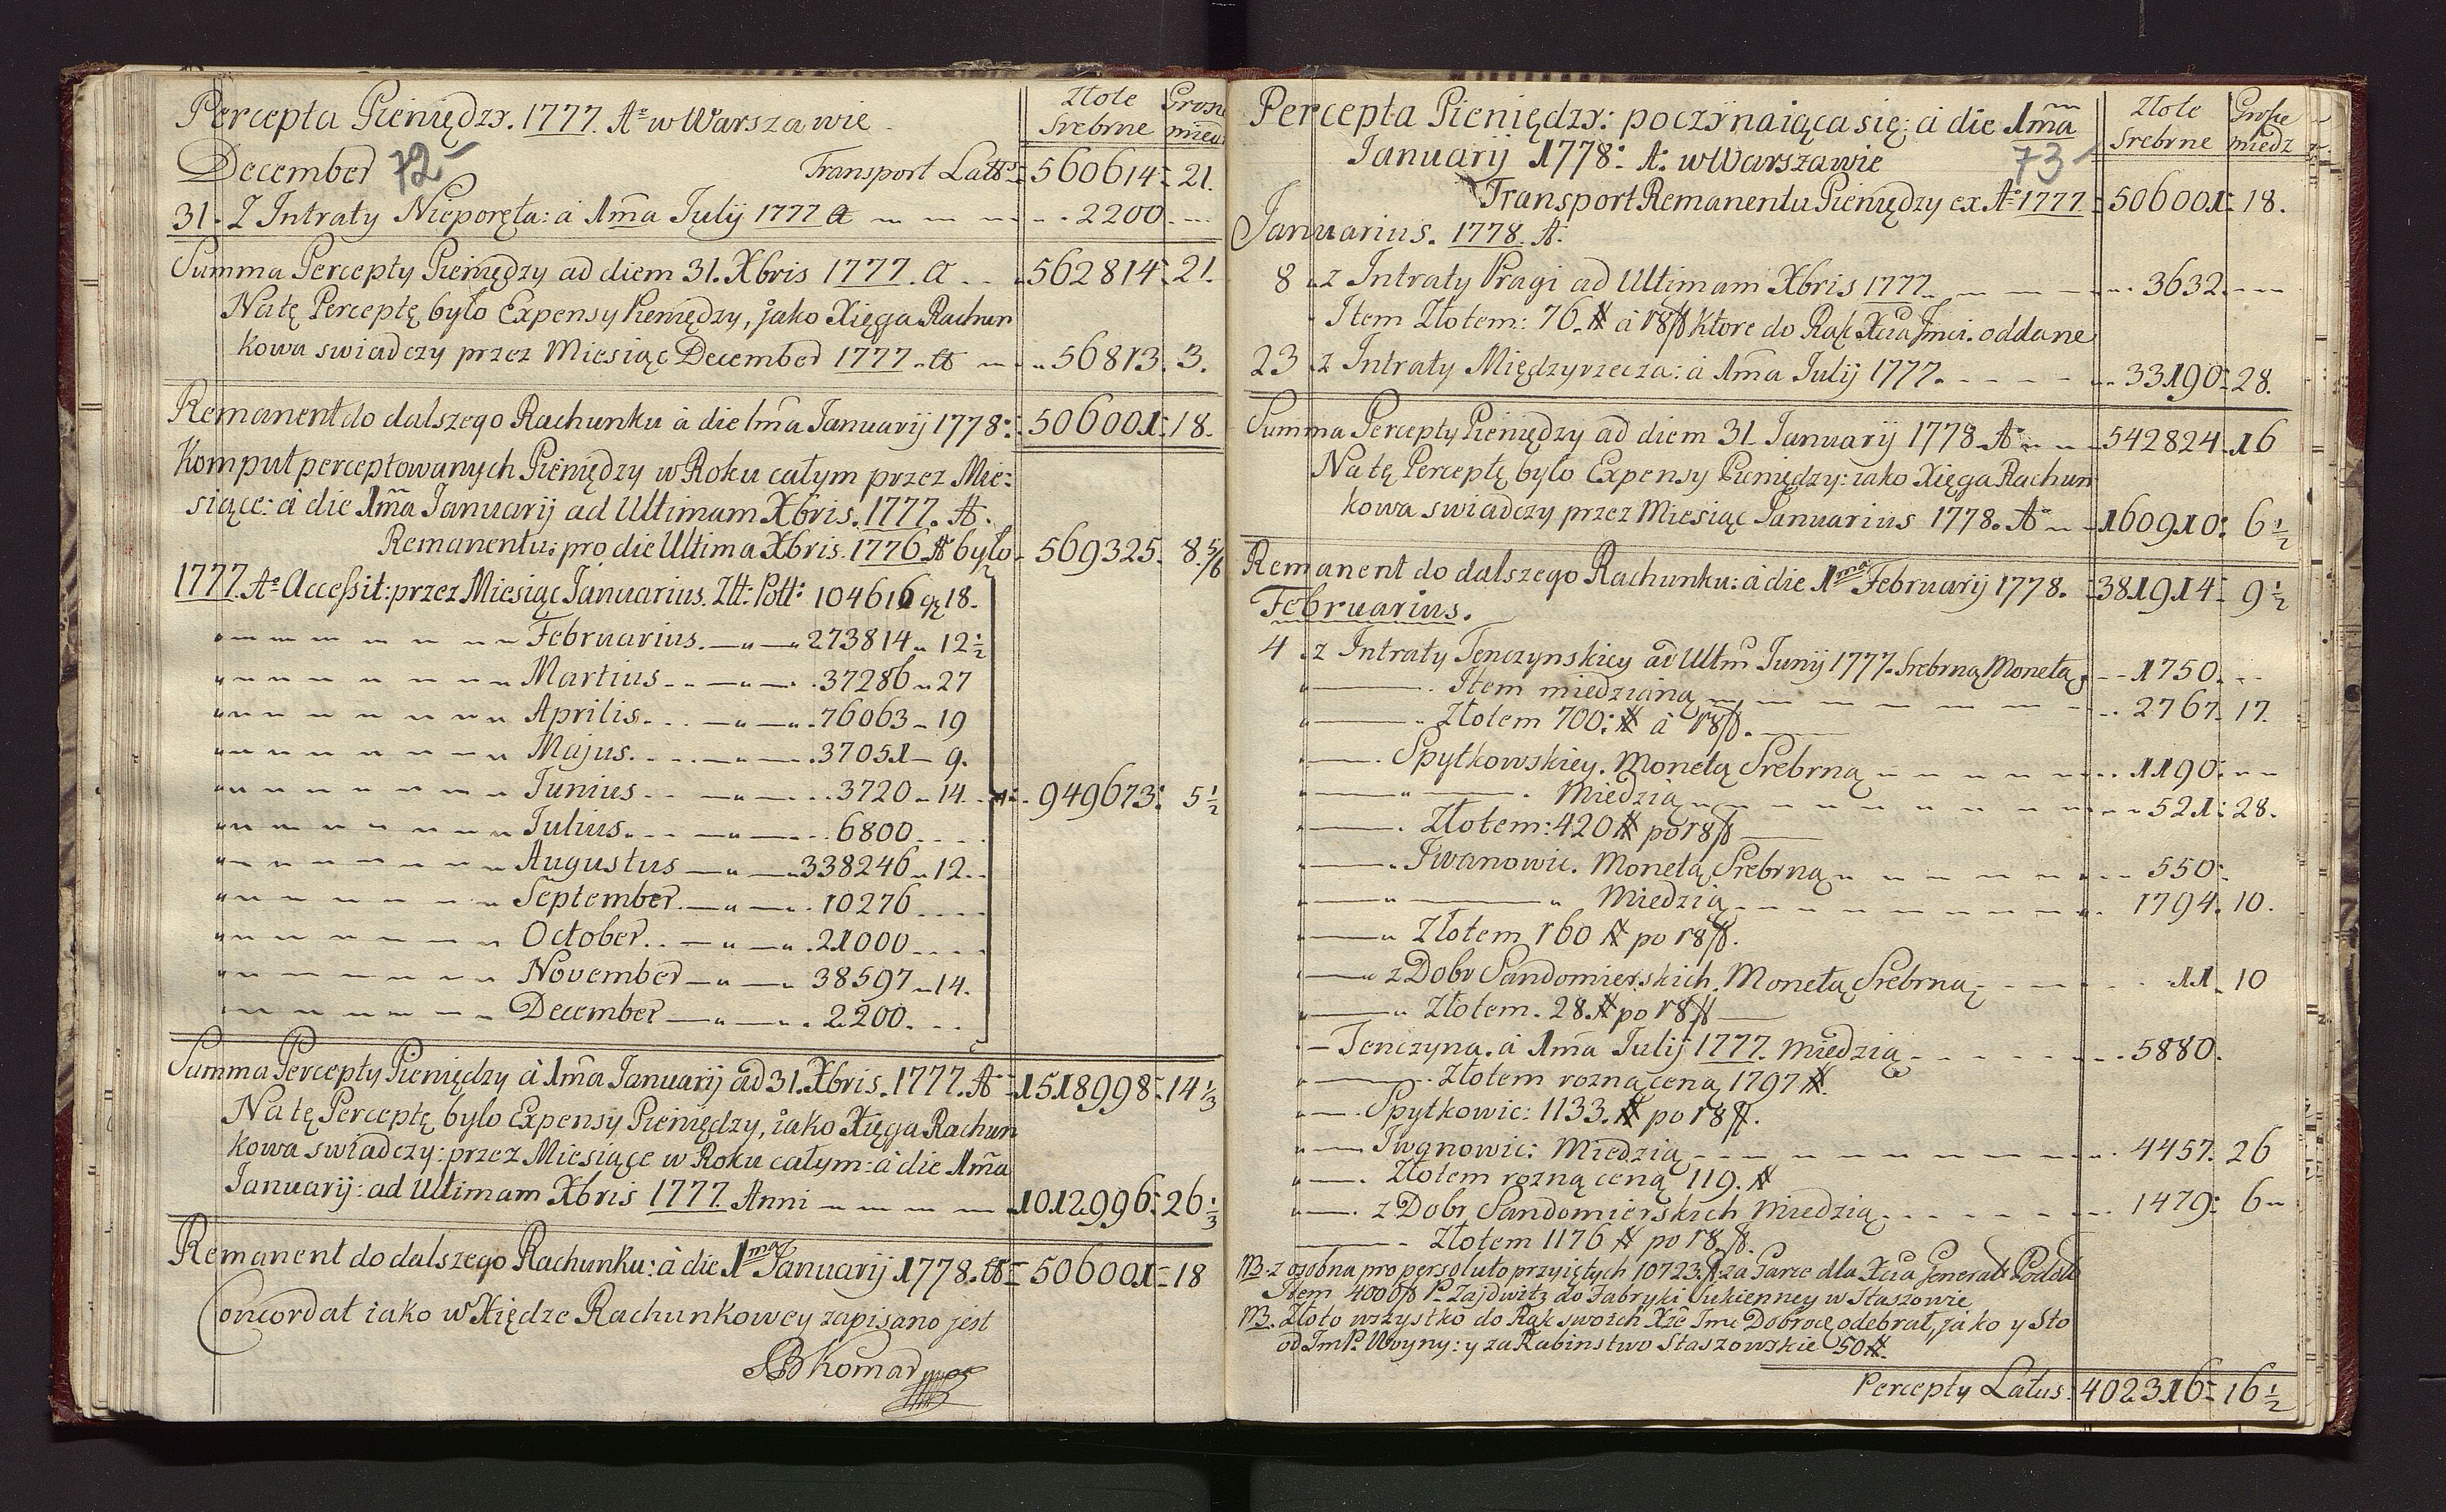 Percepta Pieniędzy. 1777. Aº w Warszawie
Złote Srebrne
Grosze miedz
December 72
Transport Latus 560614 21.
31. Z Intraty Nieporęta: à 1ma Julij 1777 A 2200
Summa Percepty Pieniędzy ad diem 31. Xbris 1777. A 562814 21.
Na tę Perceptę było Expensy Pieniędzy, jako Xięga Rachun
kowa swiadczy przez Miesiąc December 1777 56813. 3.
Remanent do dalszego Rachunku à die 1ma Januarij 1778: 506001: 18.
Komput perceptowanych Pieniędzy w Roku całym przez Mie:
siące: à die 1ma Januarij ad Ultimam Xbris. 1777. A.
Remanentu: pro die Ultima Xbris. 1776 A było 569325. 8. 5/6
1777. Aº Accessit: przez Miesiąc Januarius. Złt: Poll: 104616 gr 18.
Februarius. 273814 12 1/2
Martius 37286 27
Aprilis. 76063 19
Majus. 37051 9.
Junius 3720 14. 949673: 5 1/2
Julius. 6800
Augustus 338246 12.
September. 10276
October. 21000
November 38597 14.
December 2200.
Summa Percepty Pieniędzy à 1ma Januarij ad 31. Xbris. 1777. A 1518998 14 1/3
Na tę Perceptę było Expensy Pieniędzy, iako Xięga Rachun
kowa swiadczy: przez Miesiące w Roku całym: à die 1ma
Januarij: ad Ultimam Xbris 1777. Anni 1012996: 26 1/3
Remanent do dalszego Rachunku: à die 1ma Januarij 1778. 506001 18
Concordat iako w Xiędze Rachunkowey zapisano jest
Komar
Percepta Pieniędzy: poczynaiąca się: à die 1ma
Januarij 1778: A: w Warszawie
73
Złote Srebrne
Grosze miedz
Transport Remanentu Pieniędzy ex Aº 1777 506001 18.
Januarius. 1778. A.
8 z Intraty Pragi ad Ultimam Xbris 1777. 3632.
Item Złotem: 76. # à 18 ff ktore do Rąk Xcia Jmci. oddane
23 z Intraty Międzyrzecza: à 1ma Julij 1777. 33190: 28.
Summa Percepty Pieniędzy ad diem 31. Januarij 1778 Aº 542824 16
Na tę Perceptę było Expensy Pieniędzy: iako Xięga Rachun
kowa swiadczy przez Miesiąc Januarius 1778. Aº 160910: 6 1/2
Remanent do dalszego Rachunku: à die 1ma Februarij 1778. 381914 9 1/2
Februarius.
4 z Intraty Tenczynskiey ad Ultm Junij 1777. Srebrną Monetą 1750.
Item miedzianą 2767 17.
Złotem 700: # à 18 ff.
Spytkowskiey. Monetą Srebrną 1190:
Miedzią 521: 28.
Złotem: 420 # po 18 ff
Iwanowic. Monetą Srebrną 550:
Miedzią 1794. 10.
Złotem 160 # po 18 ff.
z Dobr Sandomierskich. Monetą Srebrną 11. 10
Złotem. 28. # po 18 ff
Tenczyna. à 1ma Julij 1777. Miedzią 5880.
Złotem rozną ceną 1797 #.
Spytkowic: 1133. # po 18 ff.
Iwanowic: Miedzią 4457. 26
Złotem rozną ceną 119. #
z Dobr Sandomierskich Miedzią 1479: 6
Złotem 1176 # po 18. ff.
NB. z osobna pro persoluto przyiętych 10723. za Parce dla Xcia Generała Podol
Item 4000 ff P. Zajdwitz do Fabryki Sukienney w Staszowie
NB. Złoto wszystko do Rąk swoich Xże Jmc Dobrodz odebrał, jako y Sto
od Jm P. Woyny: y za Rabinstwo Staszowskie 50 #.
Percepty Latus. 402316 16 1/2